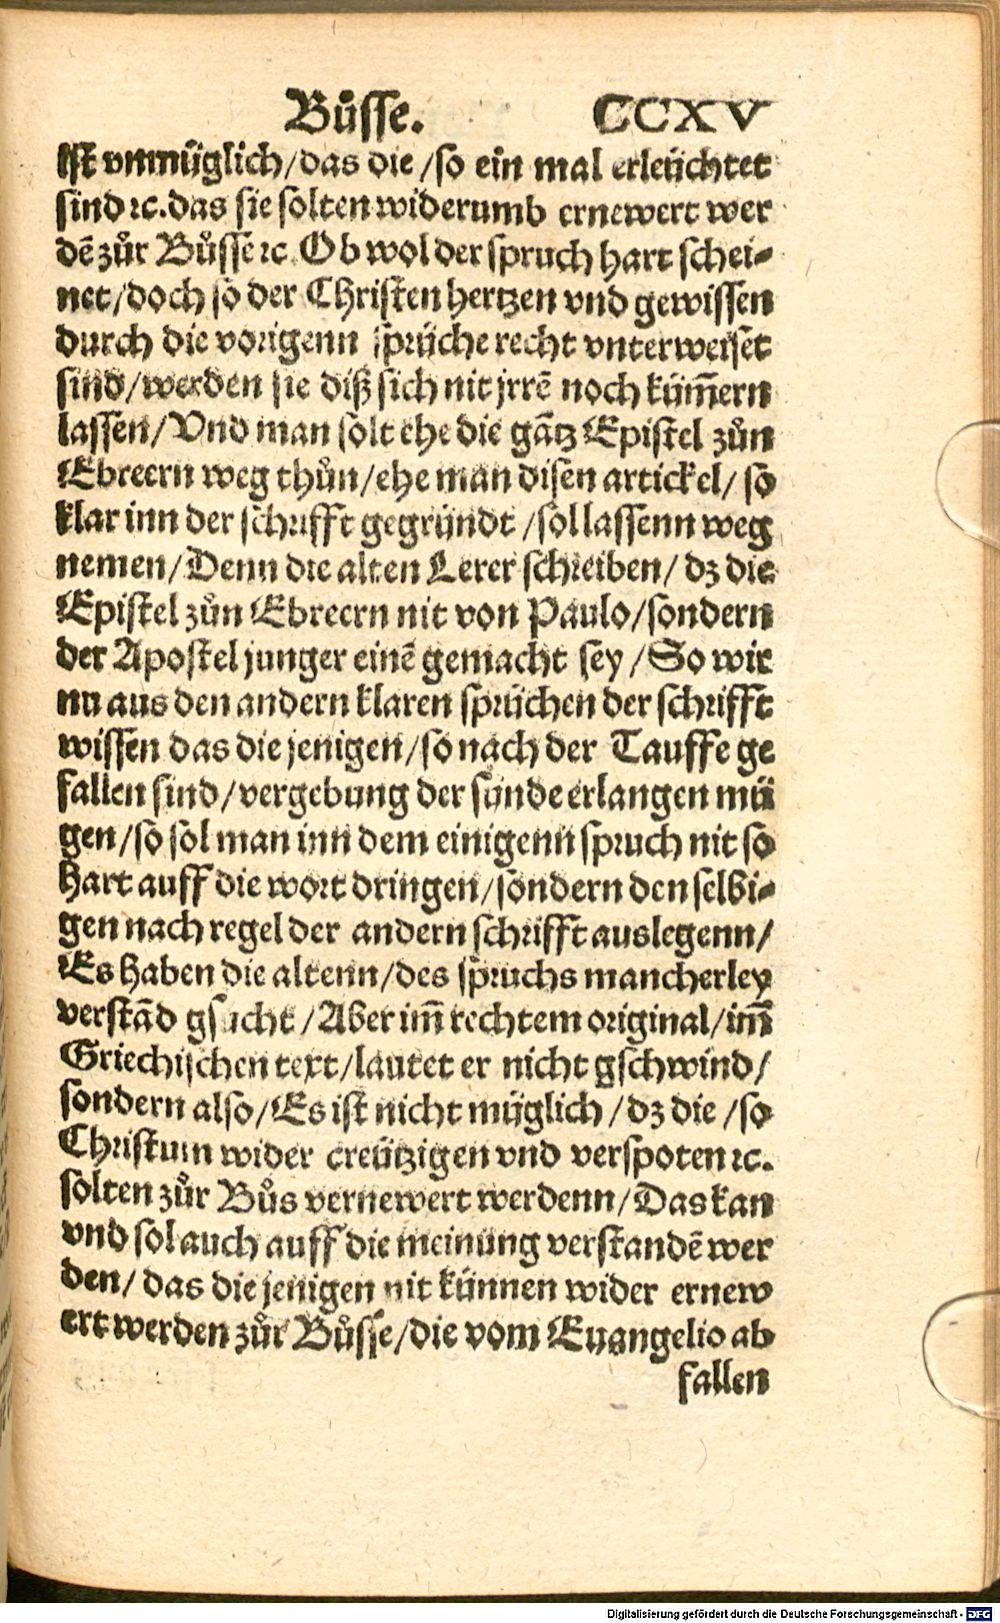 Bůsse. CCXV
Ist vnmüglich/das die/so ein mal erleüchtet
sind ꝛc. das sie solten widerumb ernewert wer
dē zůr Bůsse ꝛc. Ob wol der spruch hart schei-
net/doch so der Christen hertzen vnd gewissen
durch die vorigenn sprüche recht vnterweiset
sind/werden sie diß sich nit jrrē noch küm̄ern
lassen/Vnd man solt ehe die gātz Epistel zůn
Ebreern weg thůn/ehe man disen artickel/so
klar inn der schrifft gegründt/sol lassenn weg
nemen/Denn die alten Lerer schreiben/dz die
Epistel zůn Ebreern nit von Paulo/sondern
der Apostel junger einē gemacht sey/So wir
nu aus den andern klaren sprüchen der schrifft
wissen das die jenigen/so nach der Tauffe ge
fallen sind/vergebung der sünde erlangen mü
gen/so sol man inn dem einigenn spruch nit so
hart auff die wort dringen/sondern den selbi-
gen nach regel der andern schrifft auslegenn/
Es haben die altenn/des spruchs mancherley
verstād gsucht/Aber im̄ rechtem original/im̄
Griechischen text/lautet er nicht gschwind/
sondern also/Es ist nicht müglich/dz die/so
Christum wider creützigen vnd verspoten ꝛc.
solten zůr Bůs vernewert werdenn/Das kan
vnd sol auch auff die meinung verstandē wer
den/das die jenigen nit künnen wider ernew
ert werden zůr Bůsse/die vom Euangelio ab
fallen
Digitalisierung gefördert durch die Deutsche Forschungsgemeinschaft - DFG